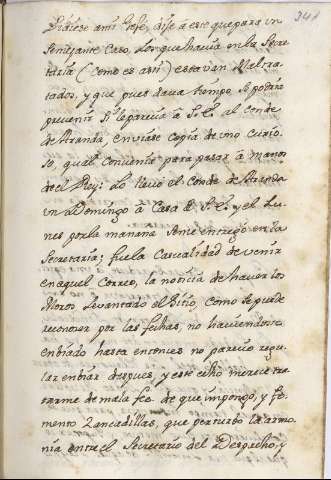 341
Pidiese a mi Gefe, dije a este que para un
semejante Caso, los que havia en la Secre
taría (como es así) estavan Maltra
tados, y que pues dava tiempo se podria
prevenir si le parecia a S.E. al Conde
de Aranda, enviase copia de uno curio
so, qual convenia para pasar a manos
de el Rey: Lo llevó el Conde de Aranda
un Domingo a Casa de S.E. y el Lu
nes por la mañana se me entregó en la
Secretaría; fue la Casualidad de venir
en aquel Correo, la noticia de haver los
Moros Levantado el Sitio, como se puede
reconocer por las fechas, no haviendose
enbiado hasta entonces no parecio regu
lar enbiar despues, y este echo merece tra
tarme de mala fee. de que impongo, y fo
mento Zancadillas, que perturbo la armo
nia entre el Secretario del Despacho, y